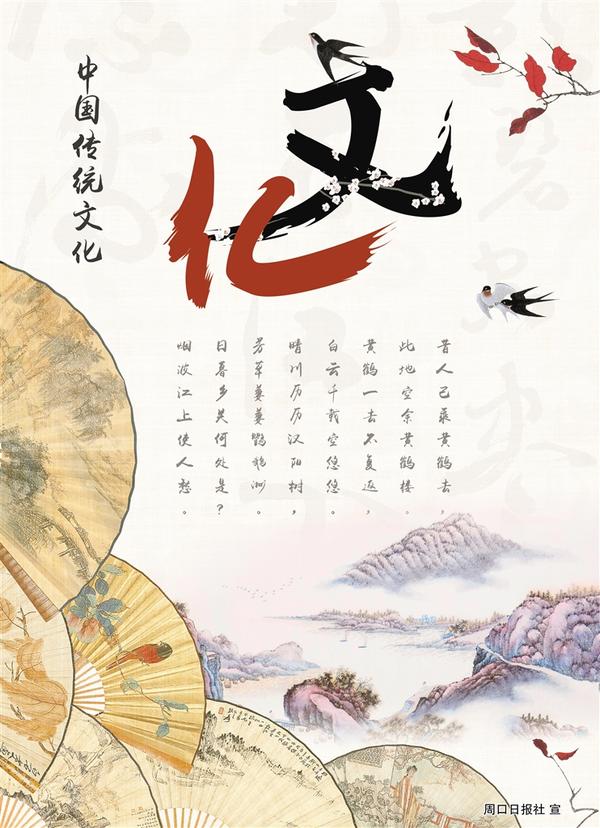 中国传统文化
文化
昔人已乘黄鹤去，
此地空余黄鹤楼。
黄鹤一去不复返，
白云千载空悠悠。
晴川历历汉阳树，
芳草萋萋鹦鹉洲。
日暮乡关何处是？
烟波江上使人愁。
周口日报社 宣